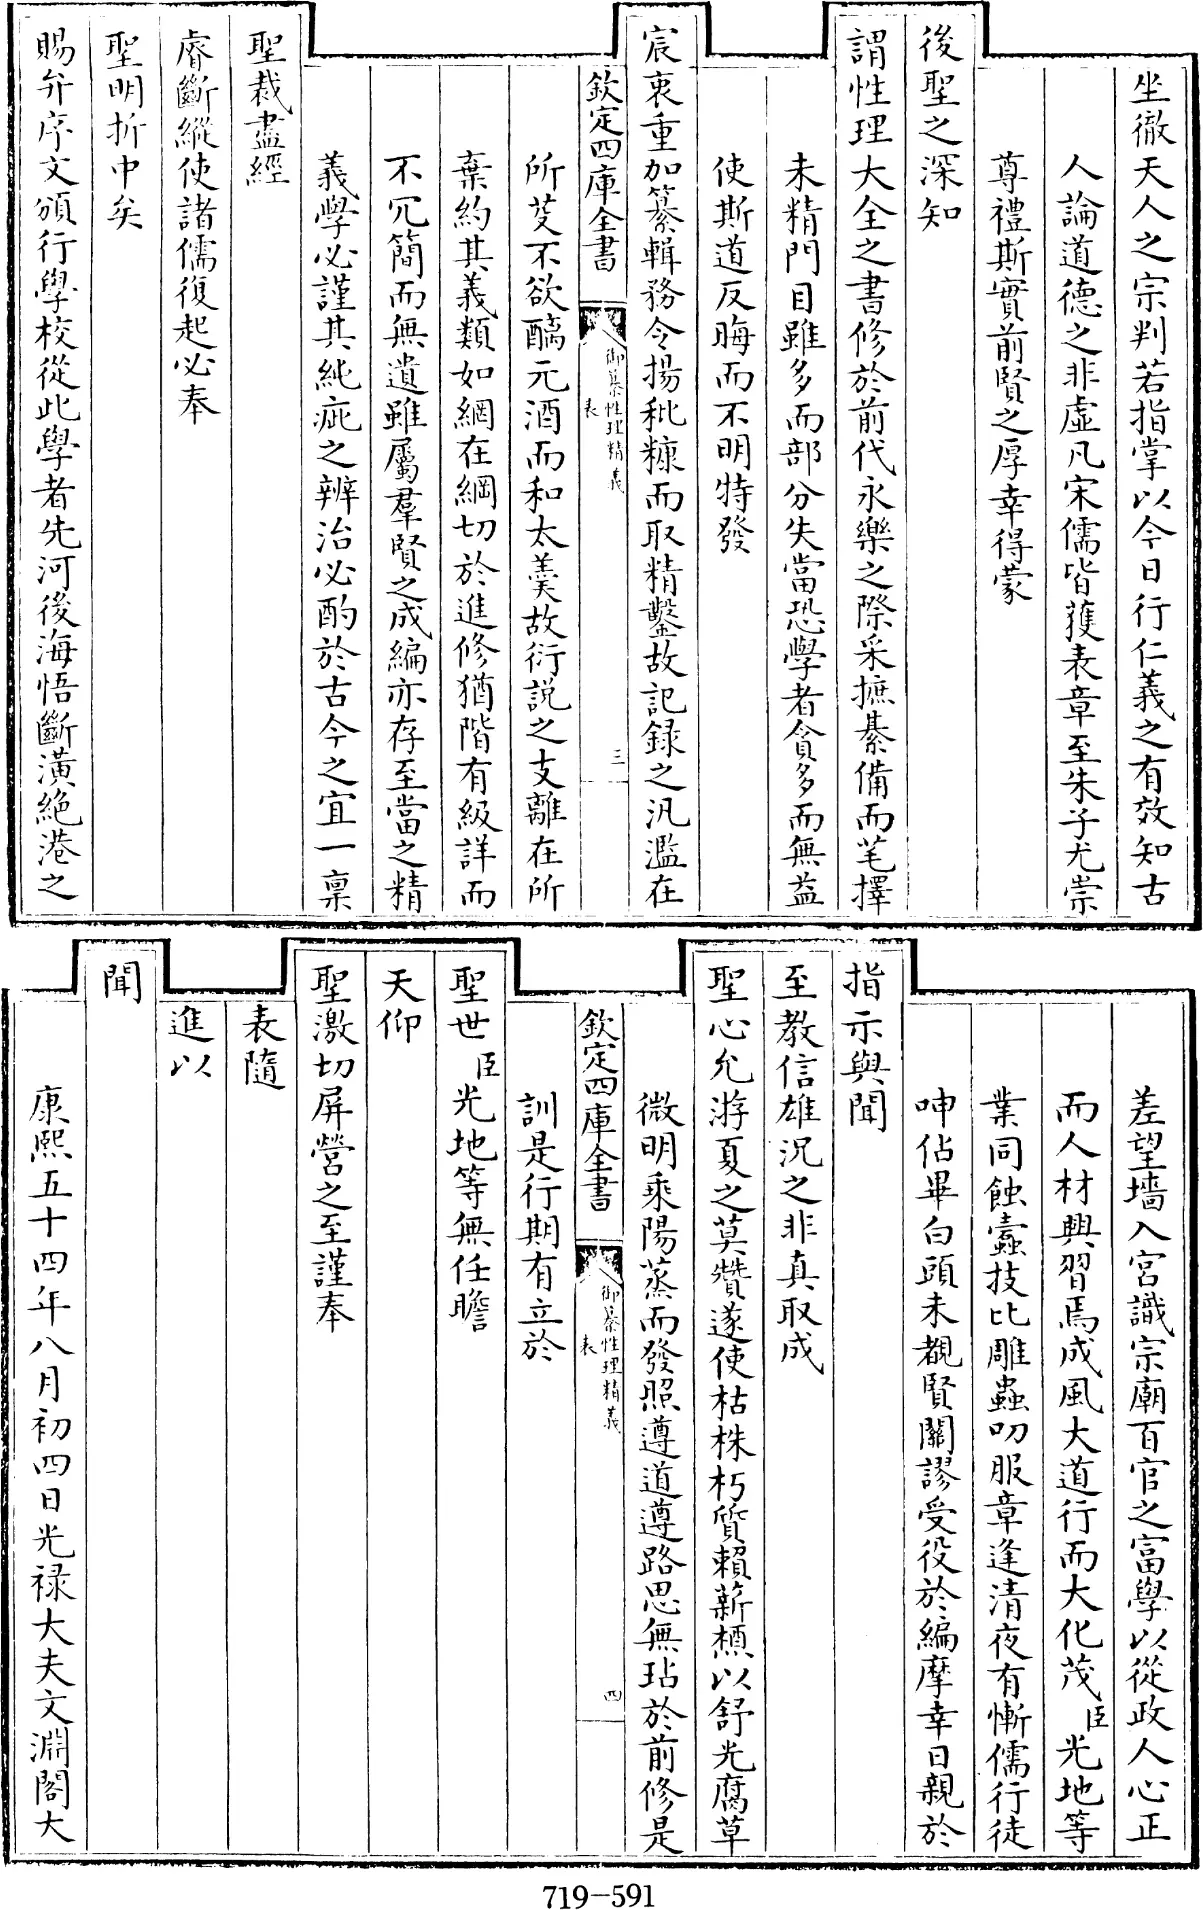 坐徹天人之宗判若指掌以今日行仁義之有效知古
人論道德之非虛凡宋儒皆獲表章至朱子尤崇
尊禮斯實前賢之厚幸得蒙
後聖之深知
謂性理大全之書修於前代永樂之際采摭綦備而笔擇
未精門目雖多而部分失當恐學者貪多而無益
使斯道反晦而不明特發
宸衷重加纂輯務令揚秕糠而取精鑿故記録之汎濫在
欽定四庫全書
御纂性理精義
表
三
所芟不欲醨元酒而和太羹故衍説之支離在所
棄約其義類如網在綱切於進修猶階有級詳而
不冗簡而無遺雖屬羣賢之成編亦存至當之精
義學必謹其純疵之辨治必酌於古今之宜一稟
聖裁盡經
睿斷縱使諸儒復起必奉
聖明折中矣
賜弁序文頒行學校從此學者先河後海悟斷潢絶港之
差望墻入宮識宗廟百官之富學以從政人心正
而人材興習焉成風大道行而大化茂臣光地等
業同蝕蠹技比雕蟲叨服章逢清夜有慚儒行徒
呻佔畢白頭未覩賢關謬受役於編摩幸日親於
指示與聞
至教信雄況之非真取成
聖心允游夏之莫贊遂使枯株朽質賴薪槱以舒光腐草
微明乘陽蒸而發照遵道遵路思無玷於前修是
欽定四庫全書
御纂性理精義
表
四
訓是行期有立於
聖世臣光地等無任瞻
天仰
聖激切屏營之至謹奉
表隨
進以
聞
康熙五十四年八月初四日光禄大夫文淵閣大
719-591